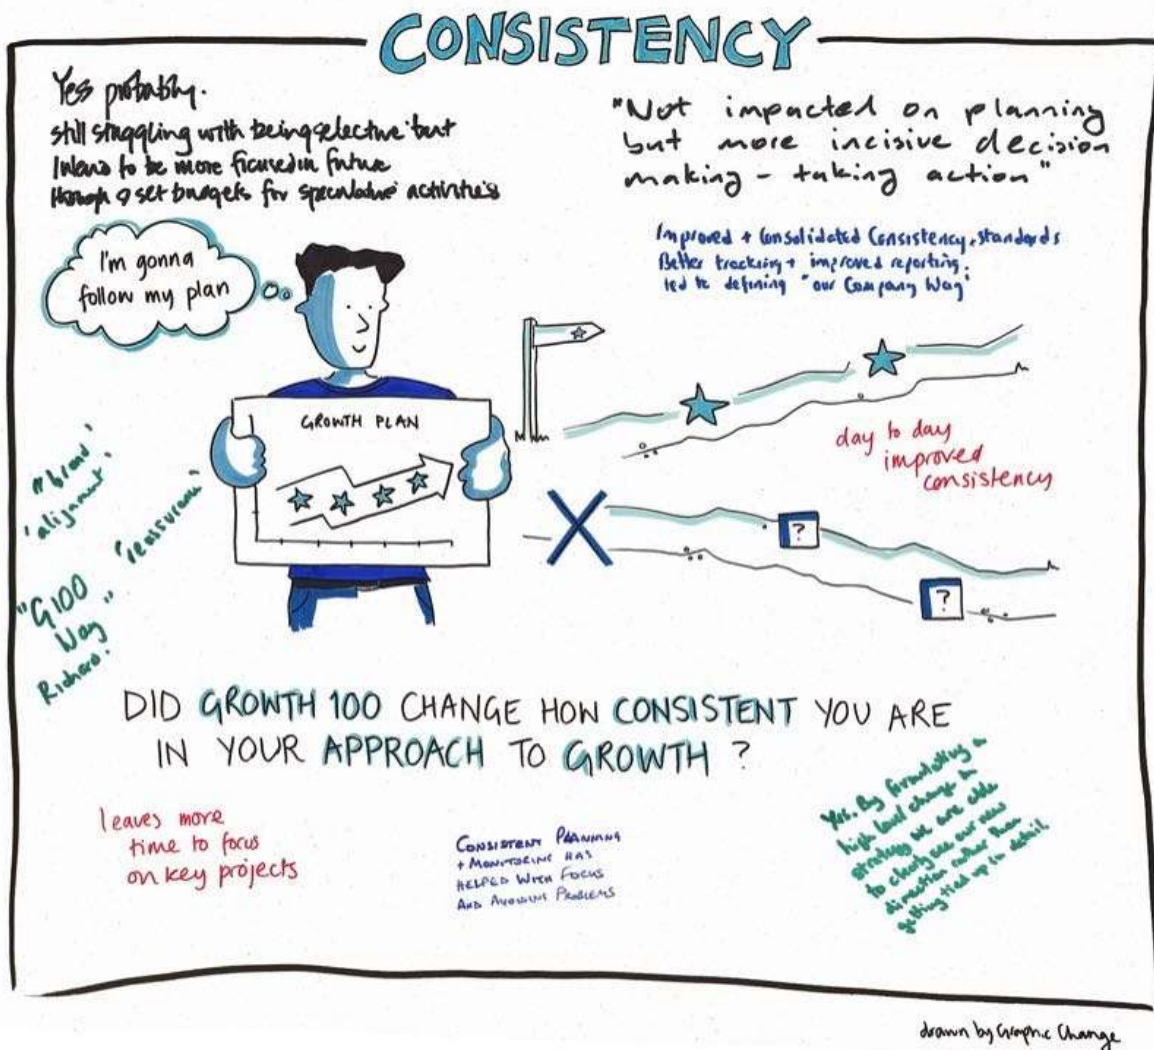 CONSISTENCY
Yes probably.
still struggling with being selective but
Intend to be more focused in future
though & set budgets for speculative activities
"Not impacted on planning
but more incisive decision
making - taking action"
Improved + Consolidated Consistency + standards
Better tracking + improved reporting.
led to defining "our Company Way"
I'm gonna
follow my plan
GROWTH PLAN
day to day
improved
consistency
"brand"
'alignment'
"reassurance"
"G100
Way"
Richard.
?
?
DID GROWTH 100 CHANGE HOW CONSISTENT YOU ARE
IN YOUR APPROACH TO GROWTH ?
leaves more
time to focus
on key projects
CONSISTENT PLANNING
+ MONITORING HAS
HELPED WITH FOCUS
AND AVOIDING PROBLEMS
Yes. By formulating a
high level change in
strategy we are able
to clearly see our new
direction rather than
getting tied up in detail.
drawn by Graphic Change